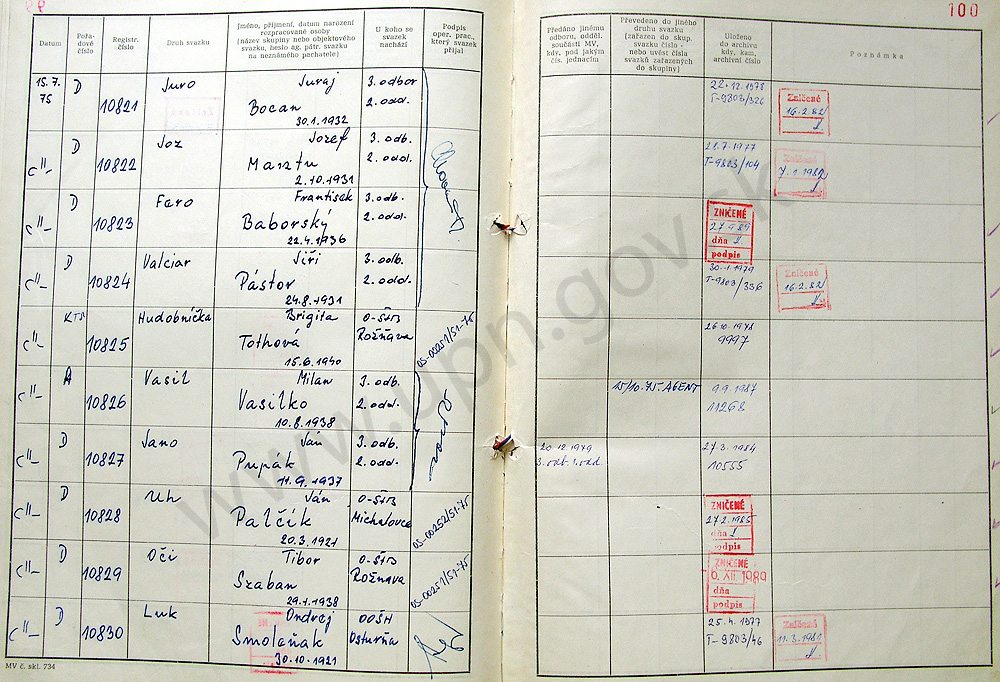 100
Datum
Pořa-
dové
číslo
Registr.
číslo
Druh svazku
Jméno, příjmení, datum narození
rozpracované osoby
(název skupiny nebo objektového
svazku, heslo ag. pátr. svazku
na neznámého pachatele)
U koho se
svazek
nachází
Podpis
oper. prac.,
který svazek
přijal
Předáno jinému
odboru, odděl.
součásti MV,
kdy, pod jakým
čís. jednacím
Převedeno do jiného
druhu svazku
(zařazen do skup.
svazku číslo -
nebo uvést čísla
svazků zařazených
do skupiny)
Uloženo
do archivu
kdy, kam,
archivní číslo
Poznámka
15.7.
75
D
10821
Juro
Juraj
Bocan
30.1.1932
3. odbor
2. odd.
22.12.1978
T-9803/326
Zničené
16.2.82
-"-
D
10822
Joz
Jozef
2.10.1931
3. odb.
2. odd.
28.7.1977
T-9803/104
Zničené
7.1.1982
-"-
D
10823
Faro
František
Baborský
22.4.1936
3. odb.
2. odd.
ZNIČENÉ
27.9.89
dňa
podpis
-"-
D
10824
Valciar
Jiří
Pástor
24.8.1931
3. odb.
2. odd.
30.1.1979
T-9803/336
Zničené
16.2.82
-"-
KTS
10825
Hudobníčka
Brigita
Tothová
15.6.1940
O-ŠtB
Rožňava
OS-00251/S1-76
26.10.1978
9997
-"-
A
10826
Vasil
Milan
Vasilko
10.8.1938
3. odb.
2. odd.
15/10.75. AGENT
9.9.1987
11268
-"-
D
10827
Jano
Ján
Pupák
11.9.1937
3. odb.
2. odd.
20.12.1979
3. odb. 1. odd.
27.3.1984
10555
-"-
D
10828
Uh
Ján
Palčík
20.3.1921
O-ŠtB
Michalovce
OS-00252/S1-75
ZNIČENÉ
27.2.1985
dňa
podpis
-"-
D
10829
Oči
Tibor
Szaban
29.1.1938
O-ŠtB
Rožňava
OS-00251/S1-75
ZNIČENÉ
6. XII. 1989
dňa
podpis
-"-
D
10830
Luk
Ondrej
Smoleňák
30.10.1921
OOŠH
Osturňa
25.4.1977
T-9803/46
Zničené
11.3.1981
MV č. skl. 734
www.upn.gov.sk